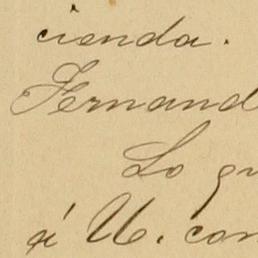 cienda.
Fernand
Lo qu
á U. con